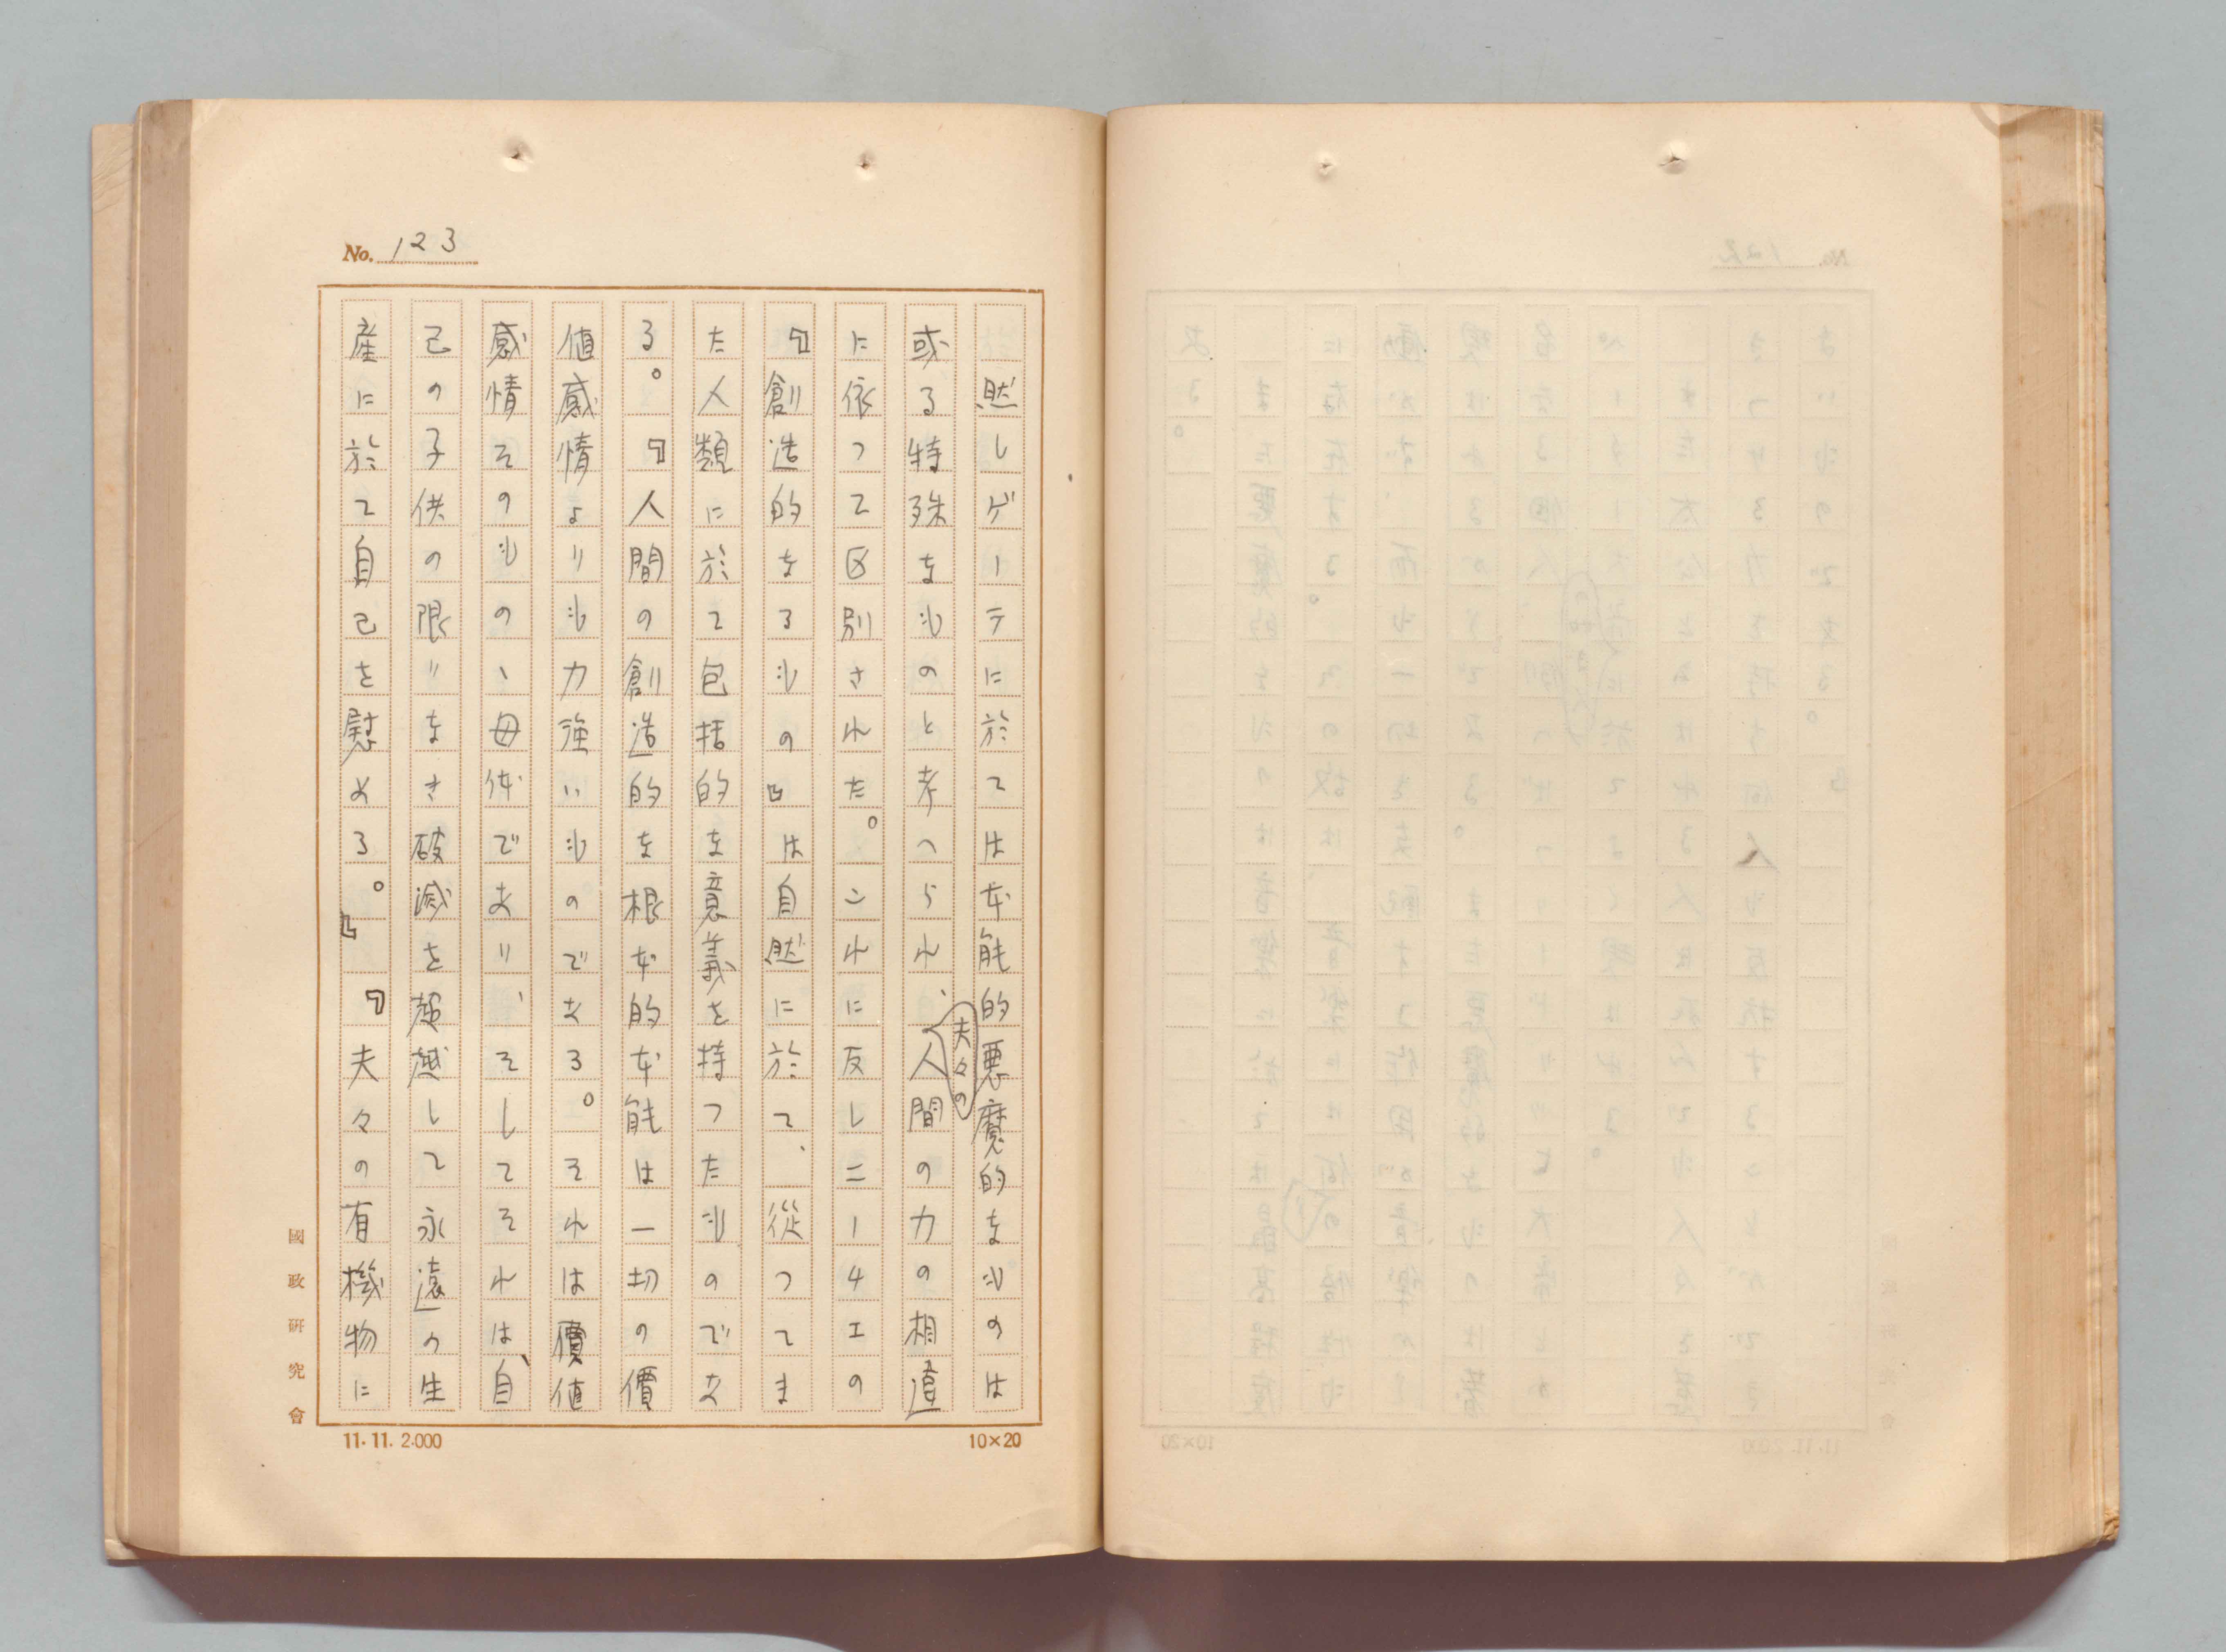 No. 123
然しゲーテに於ては本能的悪魔的なものは
或る特殊なものと考へられ、人間の力の相違
夫々の
に依つて区別された。これに反しニーチエの
『創造的なるもの』は自然に於て、従つてま
た人類に於て包括的な意義を持つたものであ
る。『人間の創造的な根本的本能は一切の價
値感情よりも力強いものである。それは價値
感情そのもの、母体であり、そしてそれは、自
己の子供の限りなき破滅を超越して永遠の生
産に於て自己を慰める。』『夫々の有機物に
國政研究會
11. 11. 2.000
10×20